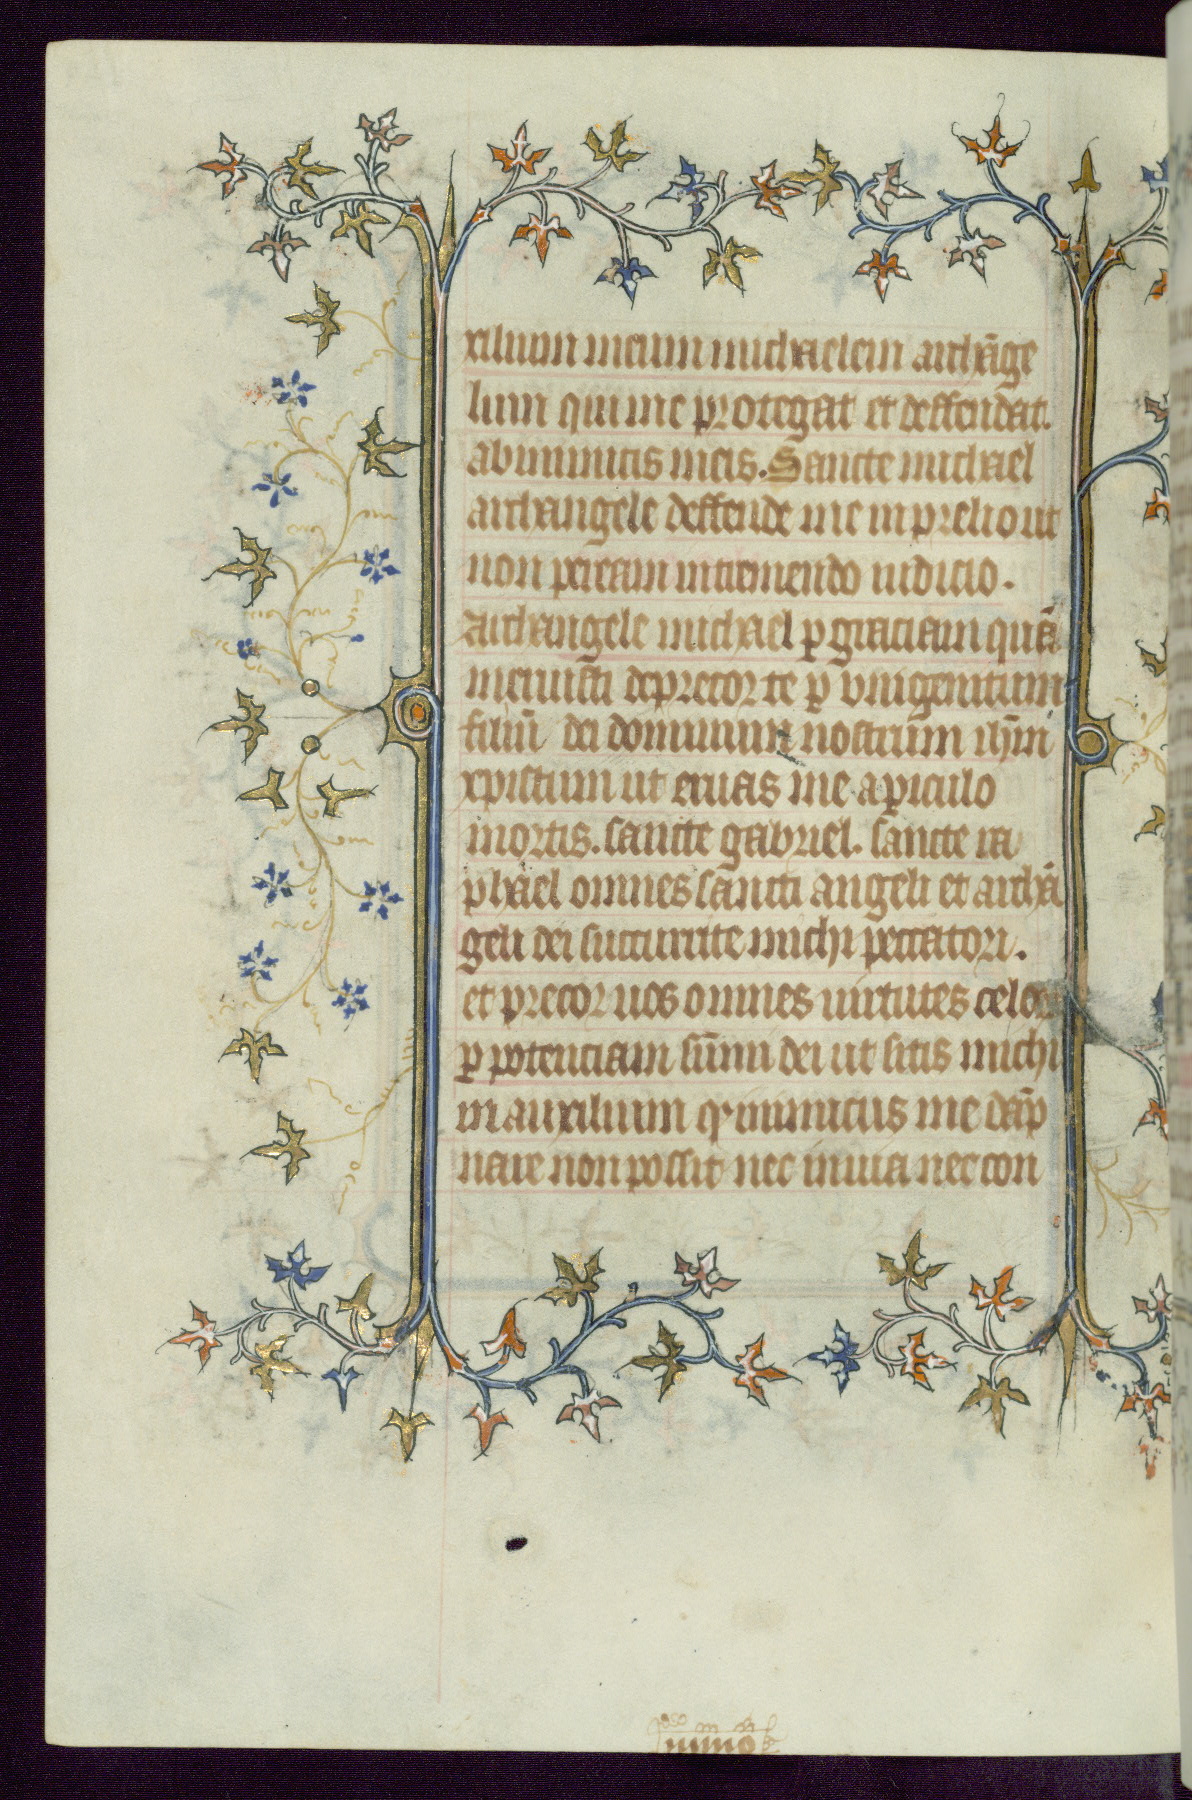 xilium meum michaelem archāge
lum qui me protegat et deffendat.
ab inimicis meis. Sancte michael
archangele deffende me in prelio ut
non peream in tremendo iudicio.
Archangele michael ꝑ graciam quā
meruisti deprecor te ꝑ vnigenitum
filiū dei dominum nostrum ihm̄
xpistum ut eruas me a ꝑiculo
mortis. sancte gabriel. sancte ra
phael omnes sancti angeli et archā
geli dei succurrite michi peccatori.
et precor uos omnes uirtutes celoꝝ
ꝑ potenciam sūmi dei ut sitis michi
in auxilium qͥ inimicus me dāp
nare non possit nec in uia nec con